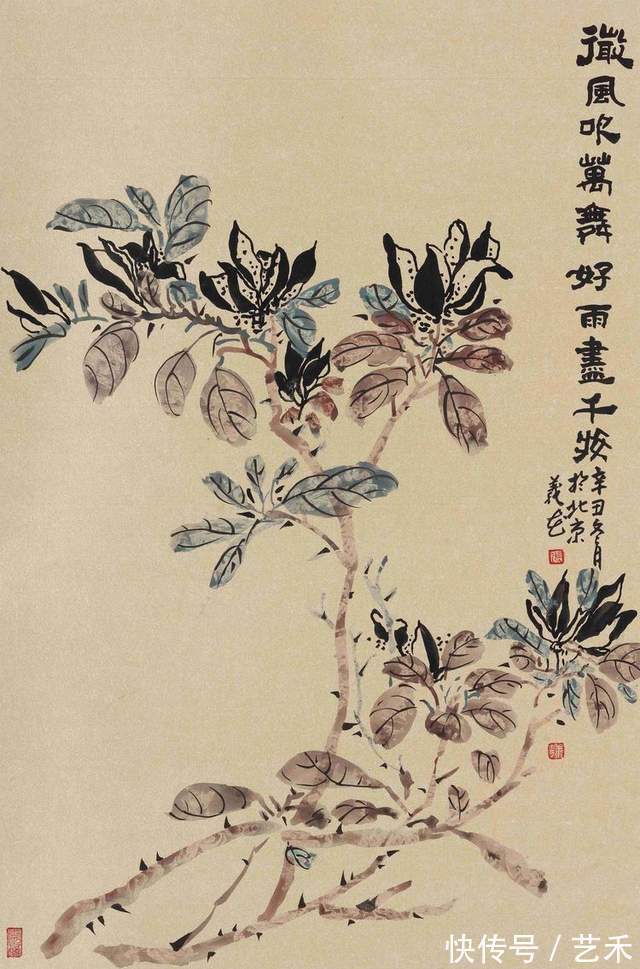 微風吹萬舞好雨盡千妝
辛丑冬月
於北京
義
快传号 / 艺禾